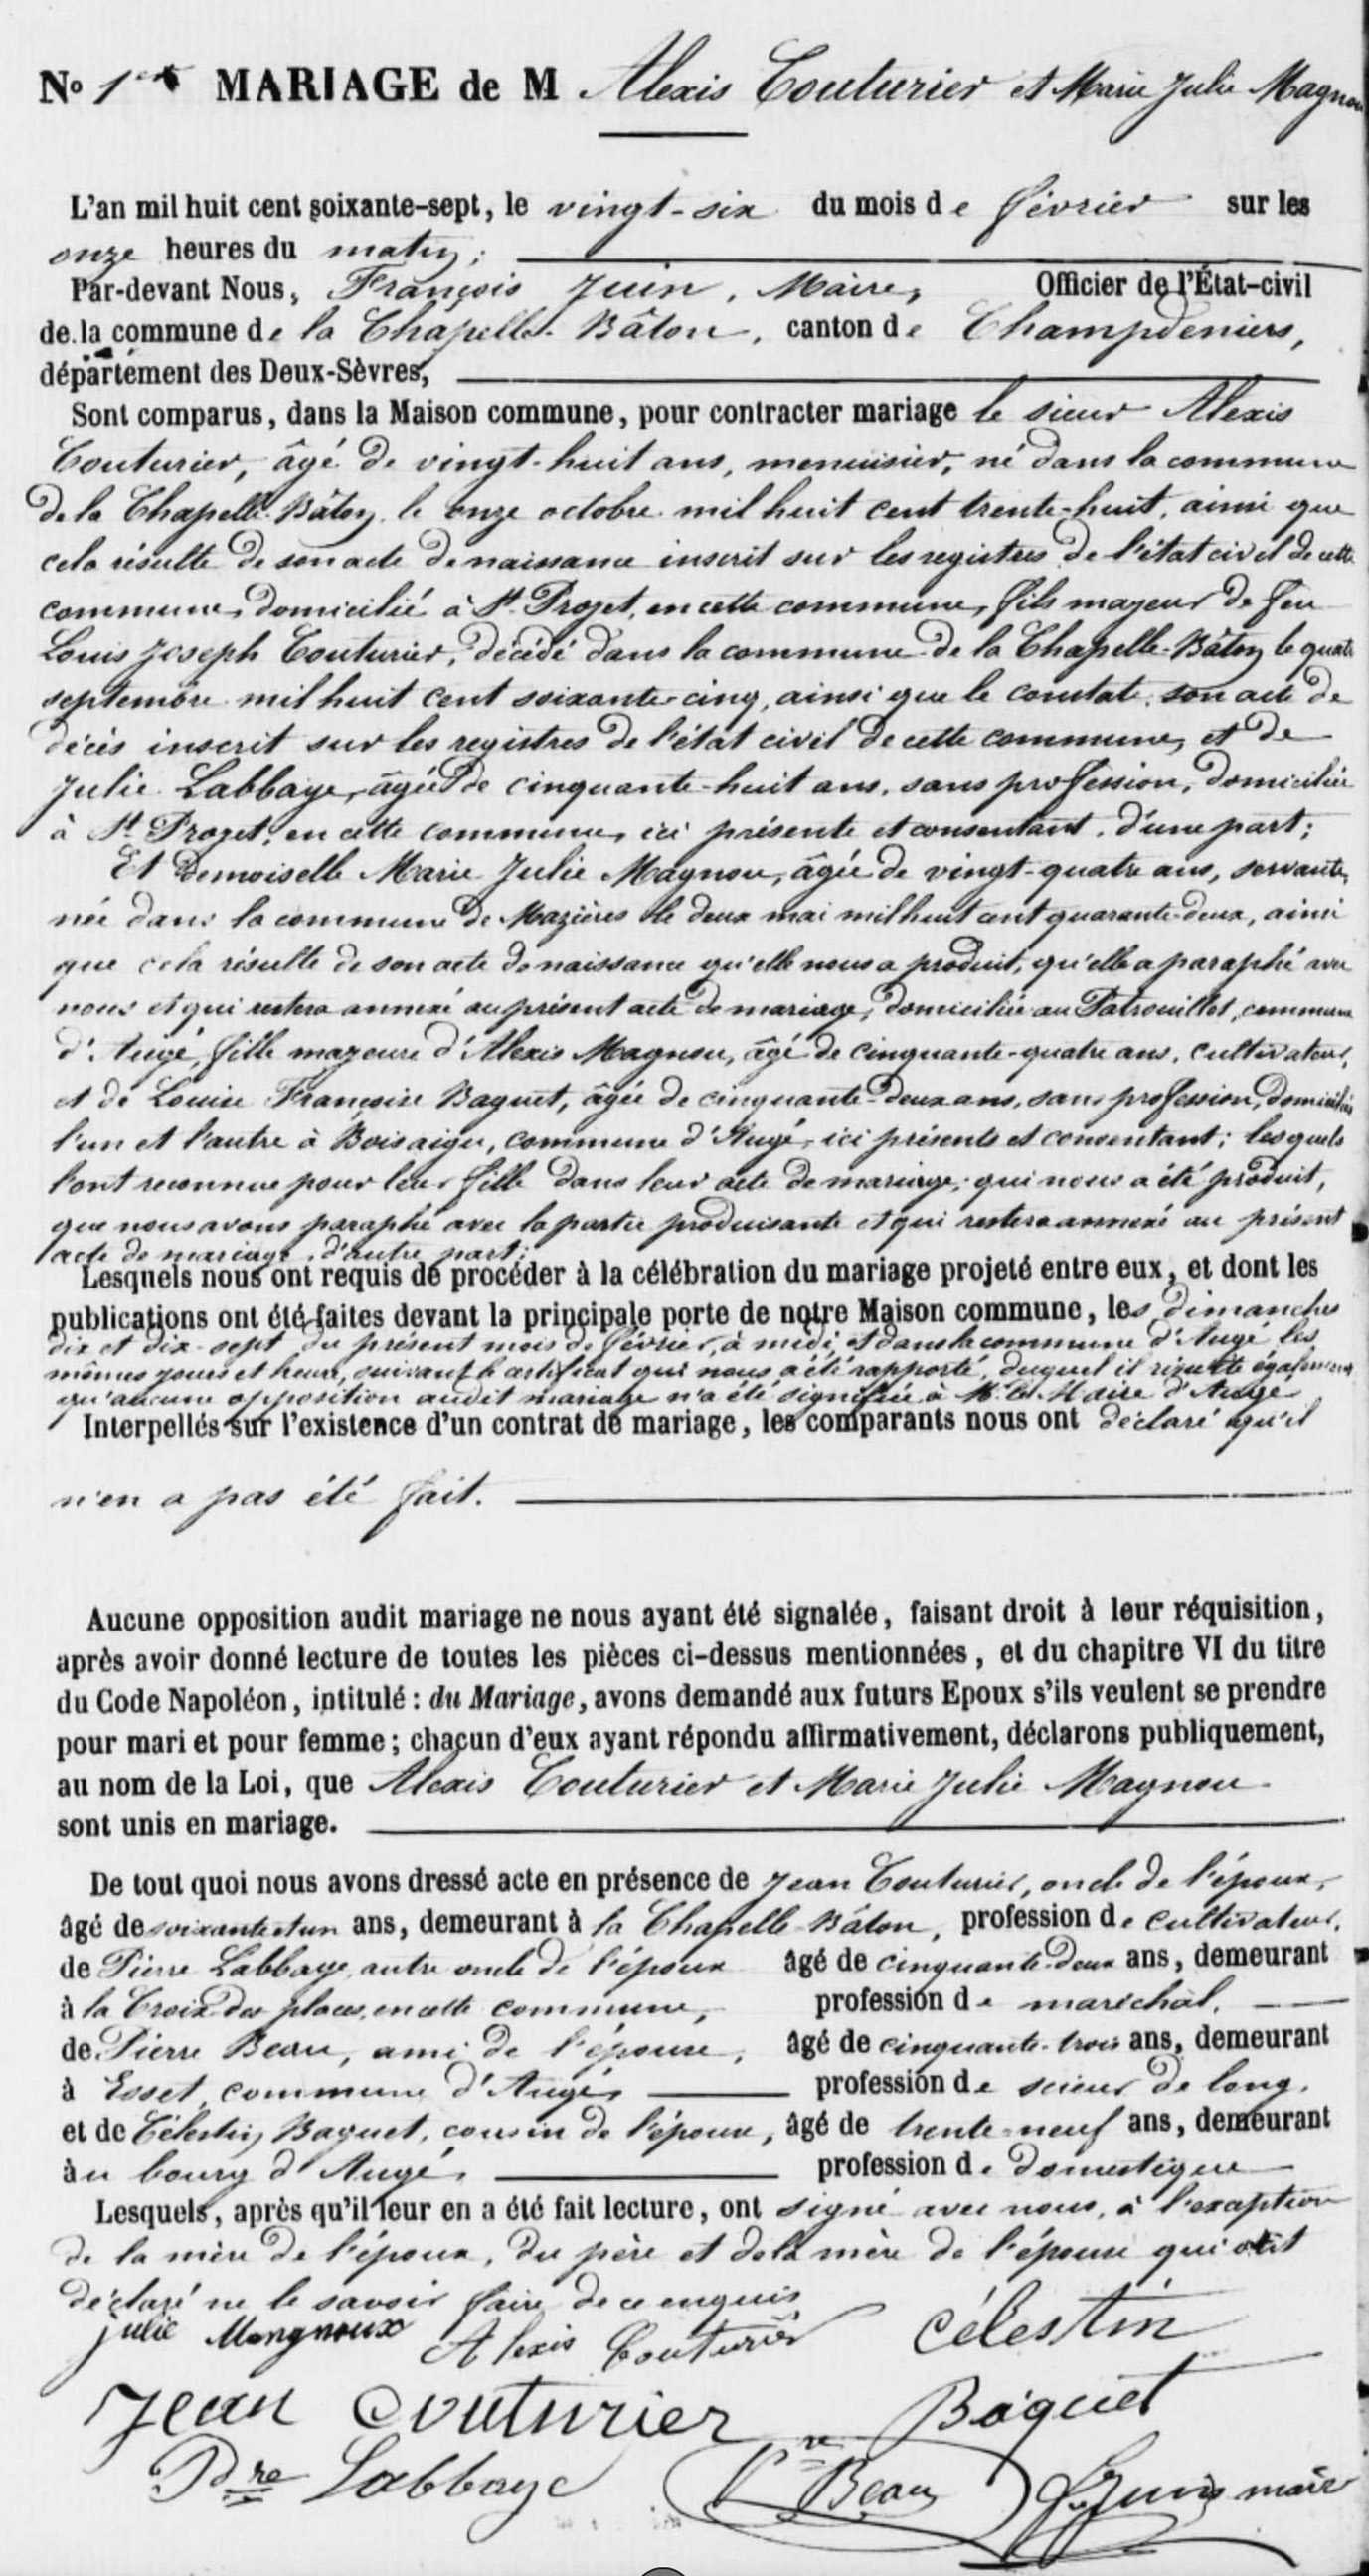 No 1er MARIAGE de M Alexis Couturier et Marie Julie Magnou
L'an mil huit cent soixante-sept, le vingt-six du mois de février sur les
onze heures du matin ;
Par-devant Nous, François Juin, Maire, Officier de l'État-civil
de la commune de la Chapelle-Bâton, canton de Champdeniers,
département des Deux-Sèvres,
Sont comparus, dans la Maison commune, pour contracter mariage le sieur Alexis
Couturier, âgé de vingt-huit ans, menuisier, né dans la commune
de la Chapelle-Bâton, le onze octobre mil huit cent trente-huit, ainsi que
cela résulte de son acte de naissance inscrit sur les registres de l'état civil de cette
commune, domicilié à St Projet, en cette commune, fils majeur de feu
Louis Joseph Couturier, décédé dans la commune de la Chapelle-Bâton le quatre
septembre mil huit cent soixante-cinq, ainsi que le constate son acte de
décès inscrit sur les registres de l'état civil de cette commune, et de
Julie Labbaye, âgée de cinquante-huit ans, sans profession, domiciliée
à St Projet, en cette commune, ici présente et consentant, d'une part ;
Et Demoiselle Marie Julie Magnou, âgée de vingt-quatre ans, servante,
née dans la commune de Mazières le deux mai mil huit cent quarante-deux, ainsi
que cela résulte de son acte de naissance qu'elle nous a produit, qu'elle a paraphé avec
nous et qui restera annexé au présent acte de mariage, domiciliée au Patrouillet, commune
d'Augé, fille majeure d'Alexis Magnou, âgé de cinquante-quatre ans, cultivateur,
et de Louise Françoise Baguet, âgée de cinquante-deux ans, sans profession, domiciliés
l'un et l'autre à Boisaigu, commune d'Augé, ici présents et consentant ; lesquels
l'ont reconnue pour leur fille dans leur acte de mariage, qui nous a été produit,
que nous avons paraphé avec la partie produisante et qui restera annexé au présent
acte de mariage, d'autre part ;
Lesquels nous ont requis de procéder à la célébration du mariage projeté entre eux, et dont les
publications ont été faites devant la principale porte de notre Maison commune, les dimanches
dix et dix-sept du présent mois de février, à midi, et dans la commune d'Augé les
mêmes jours et heure, suivant le certificat qui nous a été rapporté, duquel il résulte également
qu'aucune opposition audit mariage n'a été signifiée à Mr le Maire d'Augé
Interpellés sur l'existence d'un contrat de mariage, les comparants nous ont déclaré qu'il
n'en a pas été fait.
Aucune opposition audit mariage ne nous ayant été signalée, faisant droit à leur réquisition,
après avoir donné lecture de toutes les pièces ci-dessus mentionnées, et du chapitre VI du titre
du Code Napoléon, intitulé : du Mariage, avons demandé aux futurs Epoux s'ils veulent se prendre
pour mari et pour femme ; chacun d'eux ayant répondu affirmativement, déclarons publiquement,
au nom de la Loi, que Alexis Couturier et Marie Julie Magnou
sont unis en mariage.
De tout quoi nous avons dressé acte en présence de Jean Couturier, oncle de l'époux,
âgé de soixante et un ans, demeurant à la Chapelle-Bâton, profession de cultivateur,
de Pierre Labbaye, autre oncle de l'époux âgé de cinquante-deux ans, demeurant
à la Croix des places, en cette commune, profession de maréchal,
de Pierre Beau, ami de l'épouse, âgé de cinquante-trois ans, demeurant
à Esset, commune d'Augé, profession de scieur de long,
et de Célestin Baguet, cousin de l'épouse, âgé de trente-neuf ans, demeurant
au bourg d'Augé, profession de domestique
Lesquels, après qu'il leur en a été fait lecture, ont signé avec nous, à l'exception
de la mère de l'époux, du père et de la mère de l'épouse qui ont
déclaré ne le savoir faire de ce enquis
julie Mangnoux Alexis Couturier Célestin
Jean Couturier Baguet
Pre Labbaye Pre Beau F. Juin maire